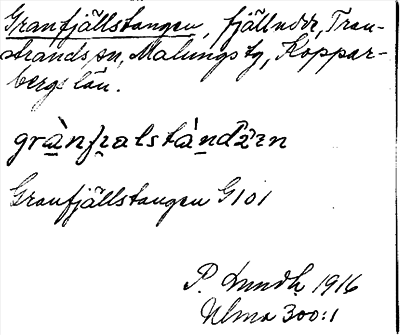 Granfjällstangen, fjälludde, Tran-
strands sn, Malungs tg, Koppar-
bergs län.
Granfjällstangen G101
P. Lundh 1916
Ulma 300:1